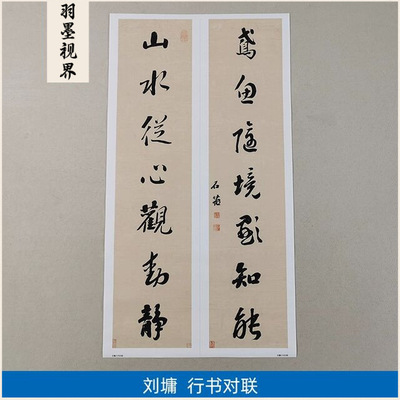 羽墨视界
鳶魚隨境顯知能
山水從心觀動靜
石菴
刘墉 行书对联